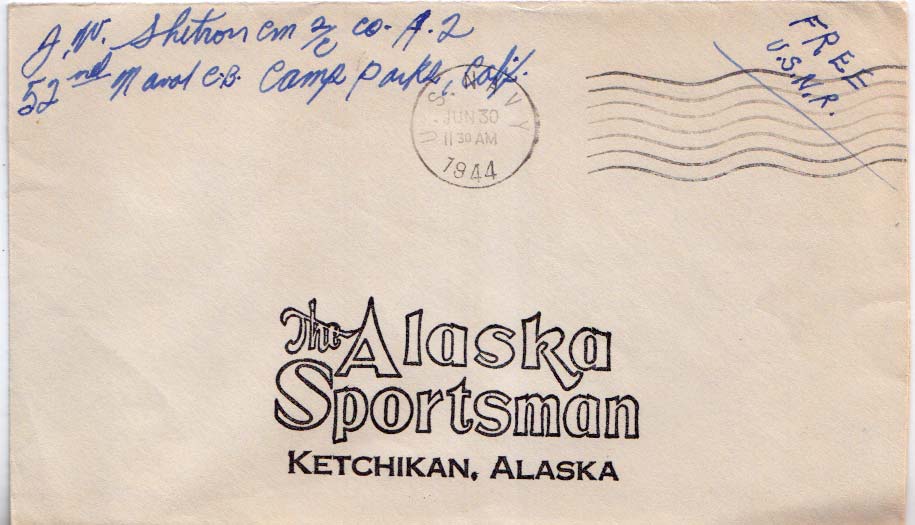 J. W. Shetron Cm 2/c Co. A.2
52nd Naval C.B. Camp Parks, Calif.
FREE
U.S.N.R.
U.S. NAVY
JUN 30
11 30 AM
1944
The Alaska
Sportsman
KETCHIKAN, ALASKA